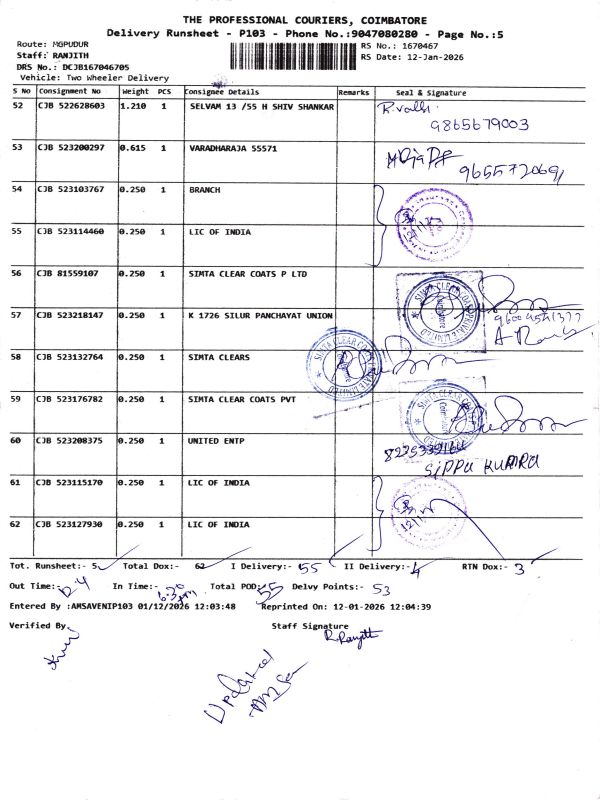 THE PROFESSIONAL COURIERS, COIMBATORE
Delivery Runsheet - P103 - Phone No.:9047080280 - Page No.:5
Route: MGPUDUR
Staff: RANJITH
DRS No.: DCJB167046705
Vehicle: Two Wheeler Delivery
RS No.: 1670467
RS Date: 12-Jan-2026
S No Consignment No Weight PCS Consignee Details Remarks Seal & Signature
52 CJB 522628603 1.210 1 SELVAM 13 /55 H SHIV SHANKAR
9865679003
53 CJB 523200297 0.615 1 VARADHARAJA 55571
9655720691
54 CJB 523103767 0.250 1 BRANCH
55 CJB 523114460 0.250 1 LIC OF INDIA
56 CJB 81559107 0.250 1 SIMTA CLEAR COATS P LTD
57 CJB 523218147 0.250 1 K 1726 SILUR PANCHAYAT UNION
58 CJB 523132764 0.250 1 SIMTA CLEARS
59 CJB 523176782 0.250 1 SIMTA CLEAR COATS PVT
60 CJB 523208375 0.250 1 UNITED ENTP
61 CJB 523115170 0.250 1 LIC OF INDIA
62 CJB 523127930 0.250 1 LIC OF INDIA
Tot. Runsheet:- 5 Total Dox:- 62 I Delivery:- 55 II Delivery:- 4 RTN Dox:- 3
Out Time:- In Time:- Total POD: 55 Delvy Points:- 53
Entered By :AMSAVENIP103 01/12/2026 12:03:48 Reprinted On: 12-01-2026 12:04:39
Verified By Staff Signature
R. Ranjith
Updated